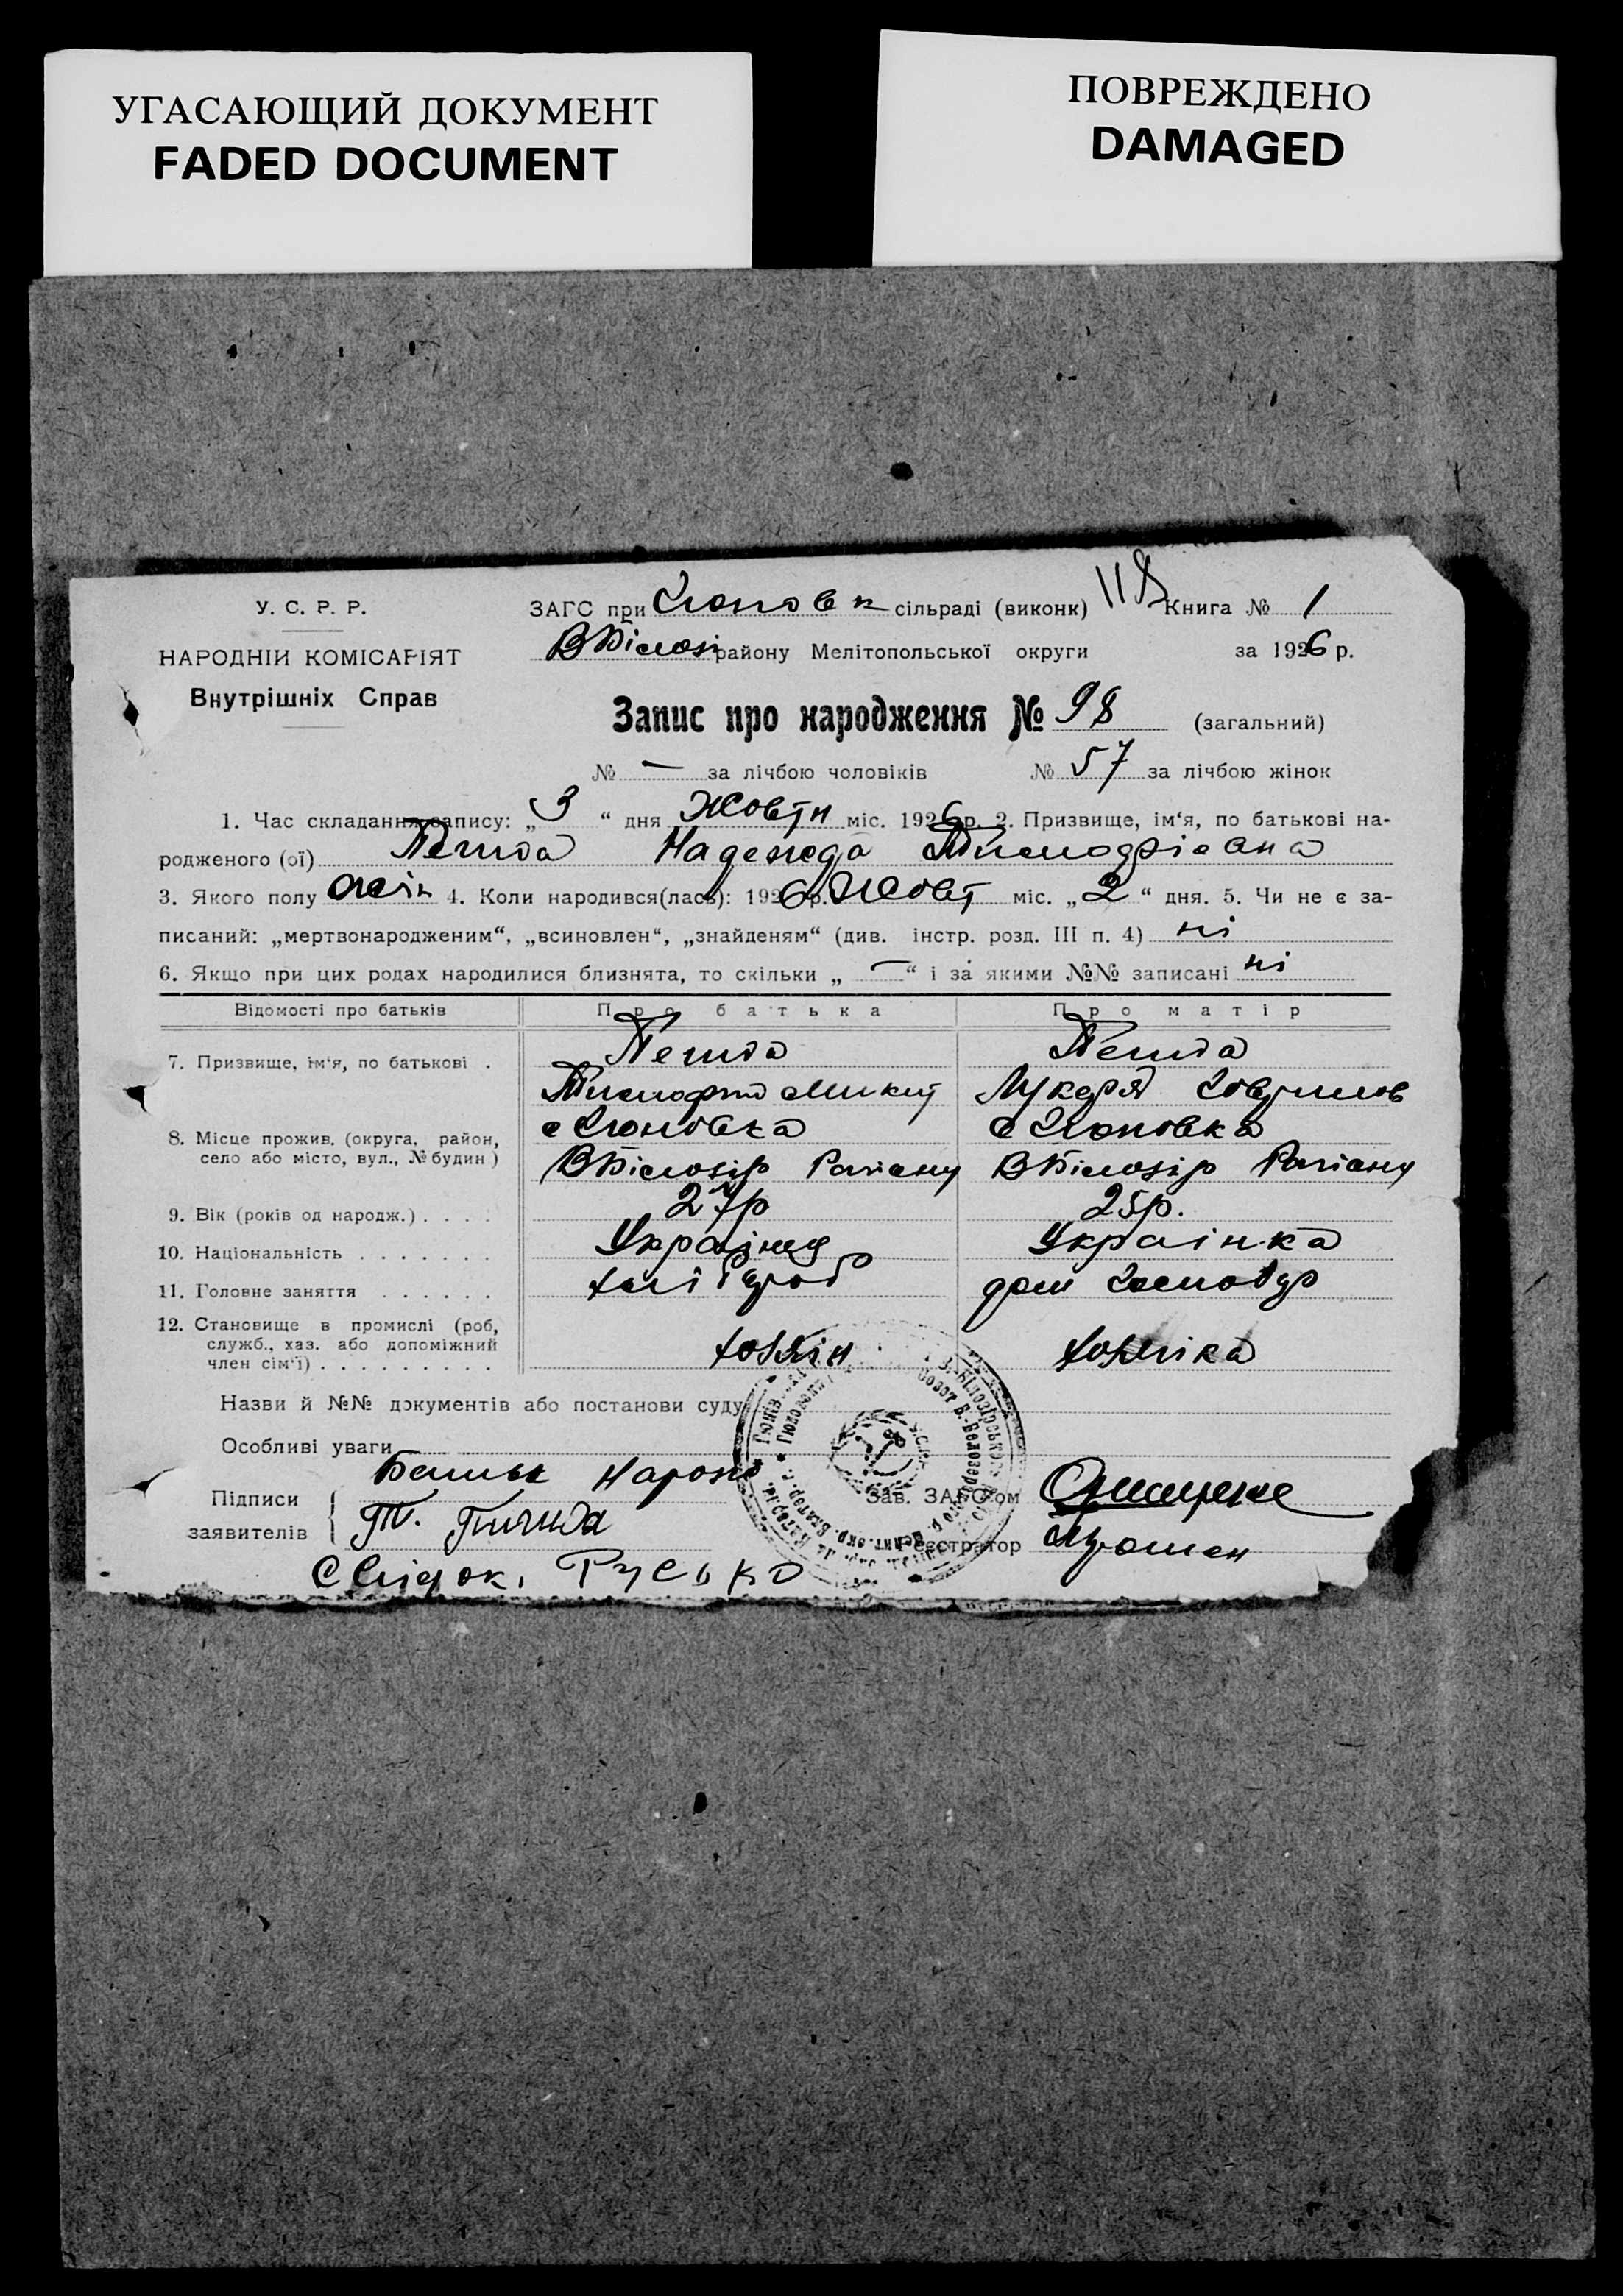 УГАСАЮЩИЙ ДОКУМЕНТ
FADED DOCUMENT
ПОВРЕЖДЕНО
DAMAGED
У. С. Р. Р.
НАРОДНІЙ КОМІСАРІЯТ
Внутрішніх Справ
ЗАГС при Гюновк сільраді (виконк) 118 Книга № 1
ВБілозі району Мелітопольської округи за 1926 р.
Запис про народження № 98 (загальний)
№ — за лічбою чоловіків № 57 за лічбою жінок
1. Час складання запису: „3“ дня Жовтн міс. 1926 р. 2. Призвище, ім‘я, по батькові на-
родженого (ої) Надежда
3. Якого полу жін 4. Коли народився(лась): 1926 р. Жовт міс. „2“ дня. 5. Чи не є за-
писаний: „мертвонародженим“, „всиновлен“, „знайденям“ (див. інстр. розд. III п. 4) ні
6. Якщо при цих родах народилися близнята, то скільки „—“ і за якими №№ записані ні
Відомості про батьків Про батька Про матір
7. Призвище, ім‘я, по батькові .
Микит Лукеря
8. Місце прожив. (округа, район,
село або місто, вул., № будин)
с Гюновка с Гюновка
ВБілозір Району ВБілозір Району
9. Вік (років од народж.) . . . . 27р 25р.
10. Національність . . . . . . . Українец Українка
11. Головне заняття . . . . . . хлібороб дом
12. Становище в промислі (роб,
служб., хаз. або допоміжний
член сім‘ї) . . . . . . . . .
Назви й №№ документів або постанови суду
Особливі уваги
Підписи
заявителів
Батьк
Зав. ЗАГС‘ом
Реєстратор
Свідок. Русько